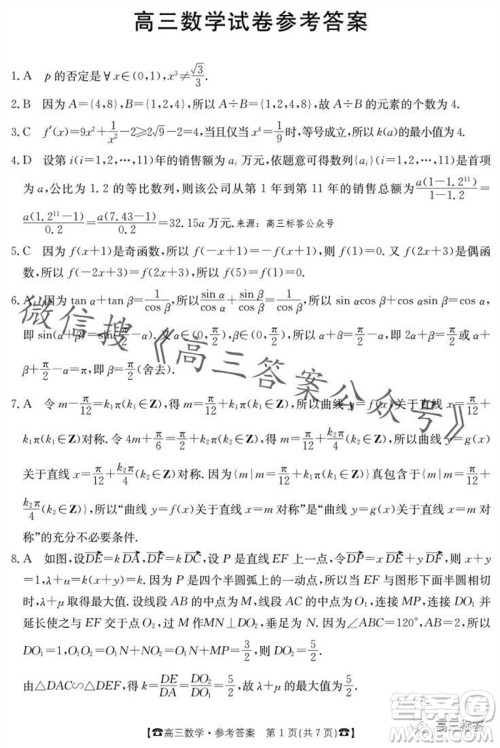 高三数学试卷参考答案
1. A p的否定是∀x∈(0,1),x³≠√3/3.
2. B 因为A={4,8},B={1,2,4},所以A÷B={1,2,4,8},故A÷B的元素的个数为4.
3. C f′(x)=9x²+1/x²-2≥2√9-2=4,当且仅当x⁴=1/9时,等号成立,所以k(a)的最小值为4.
4. D 设第i(i=1,2,…,11)年的销售额为aᵢ万元,依题意可得数列{aᵢ}(i=1,2,…,11)是首项
为a,公比为1.2的等比数列,则该公司从第1年到第11年的销售总额为a(1-1.2¹¹)/1-1.2=
a(1.2¹¹-1)/0.2=a(7.43-1)/0.2=32.15a万元.来源:高三标答公众号
5. C 因为f(x+1)是奇函数,所以f(-x+1)=-f(x+1),则f(0)=-f(2).又f(2x+3)是偶函
数,所以f(-2x+3)=f(2x+3),所以f(5)=f(1)=0.
6. A 因为tanα+tanβ=1/cosβ,所以sinα/cosα+sinβ/cosβ=1/cosβ,所以sinαcosβ+cosαsinβ=cosα,
即sin(α+β)=
α+β=π/2-α,即2α+β=π/2,或α
+β=π/2+α,即β=π/2(舍去).
7. A 令m-π/12=k₁π(k₁∈Z),得m=π/12+k₁π(k₁∈Z),所以曲线
关于直线x=π/12+
k₁π(k₁∈Z)对称.令4m+π/6=π/2+k₂π(k₂∈Z),得m=π/12+k₂π/4(k₂∈Z),所以曲线y=g(x)
关于直线x=π/12+k₂π/4(k₂∈Z)对称.因为{m|m=π/12+k₁π(k₁∈Z)}真包含于{m|m=π/12+
k₂π/4(k₂∈Z)},所以“曲线y=f(x)关于直线x=m对称”是“曲线y=g(x)关于直线x=m对
称”的充分不必要条件.
8. A 如图,设DE=kDA,DF=kDC,设P是直线EF上一点,令DP=xDE+yDF,则x+y
=1,λ+μ=k(x+y)=k.因为P是四个半圆弧上的一动点,所以当EF与图形下面半圆相切
时,λ+μ取得最大值.设线段AB的中点为M,线段AC的中点为O₁,连接MP,连接DO₁并
延长使之与EF交于点O₂,过M作MN⊥DO₂,垂足为N.因为∠ABC=120°,AB=2,所以
DO₁=1,O₁O₂=O₁N+NO₂=O₁N+MP=3/2,则DO₂=5/2.
由△DAC∽△DEF,得k=DE/DA=DO₂/DO₁=5/2,故λ+μ的最大值为5/2.
微信搜《高三答案公众号》
【高三数学·参考答案 第1页(共7页)】
高三标答